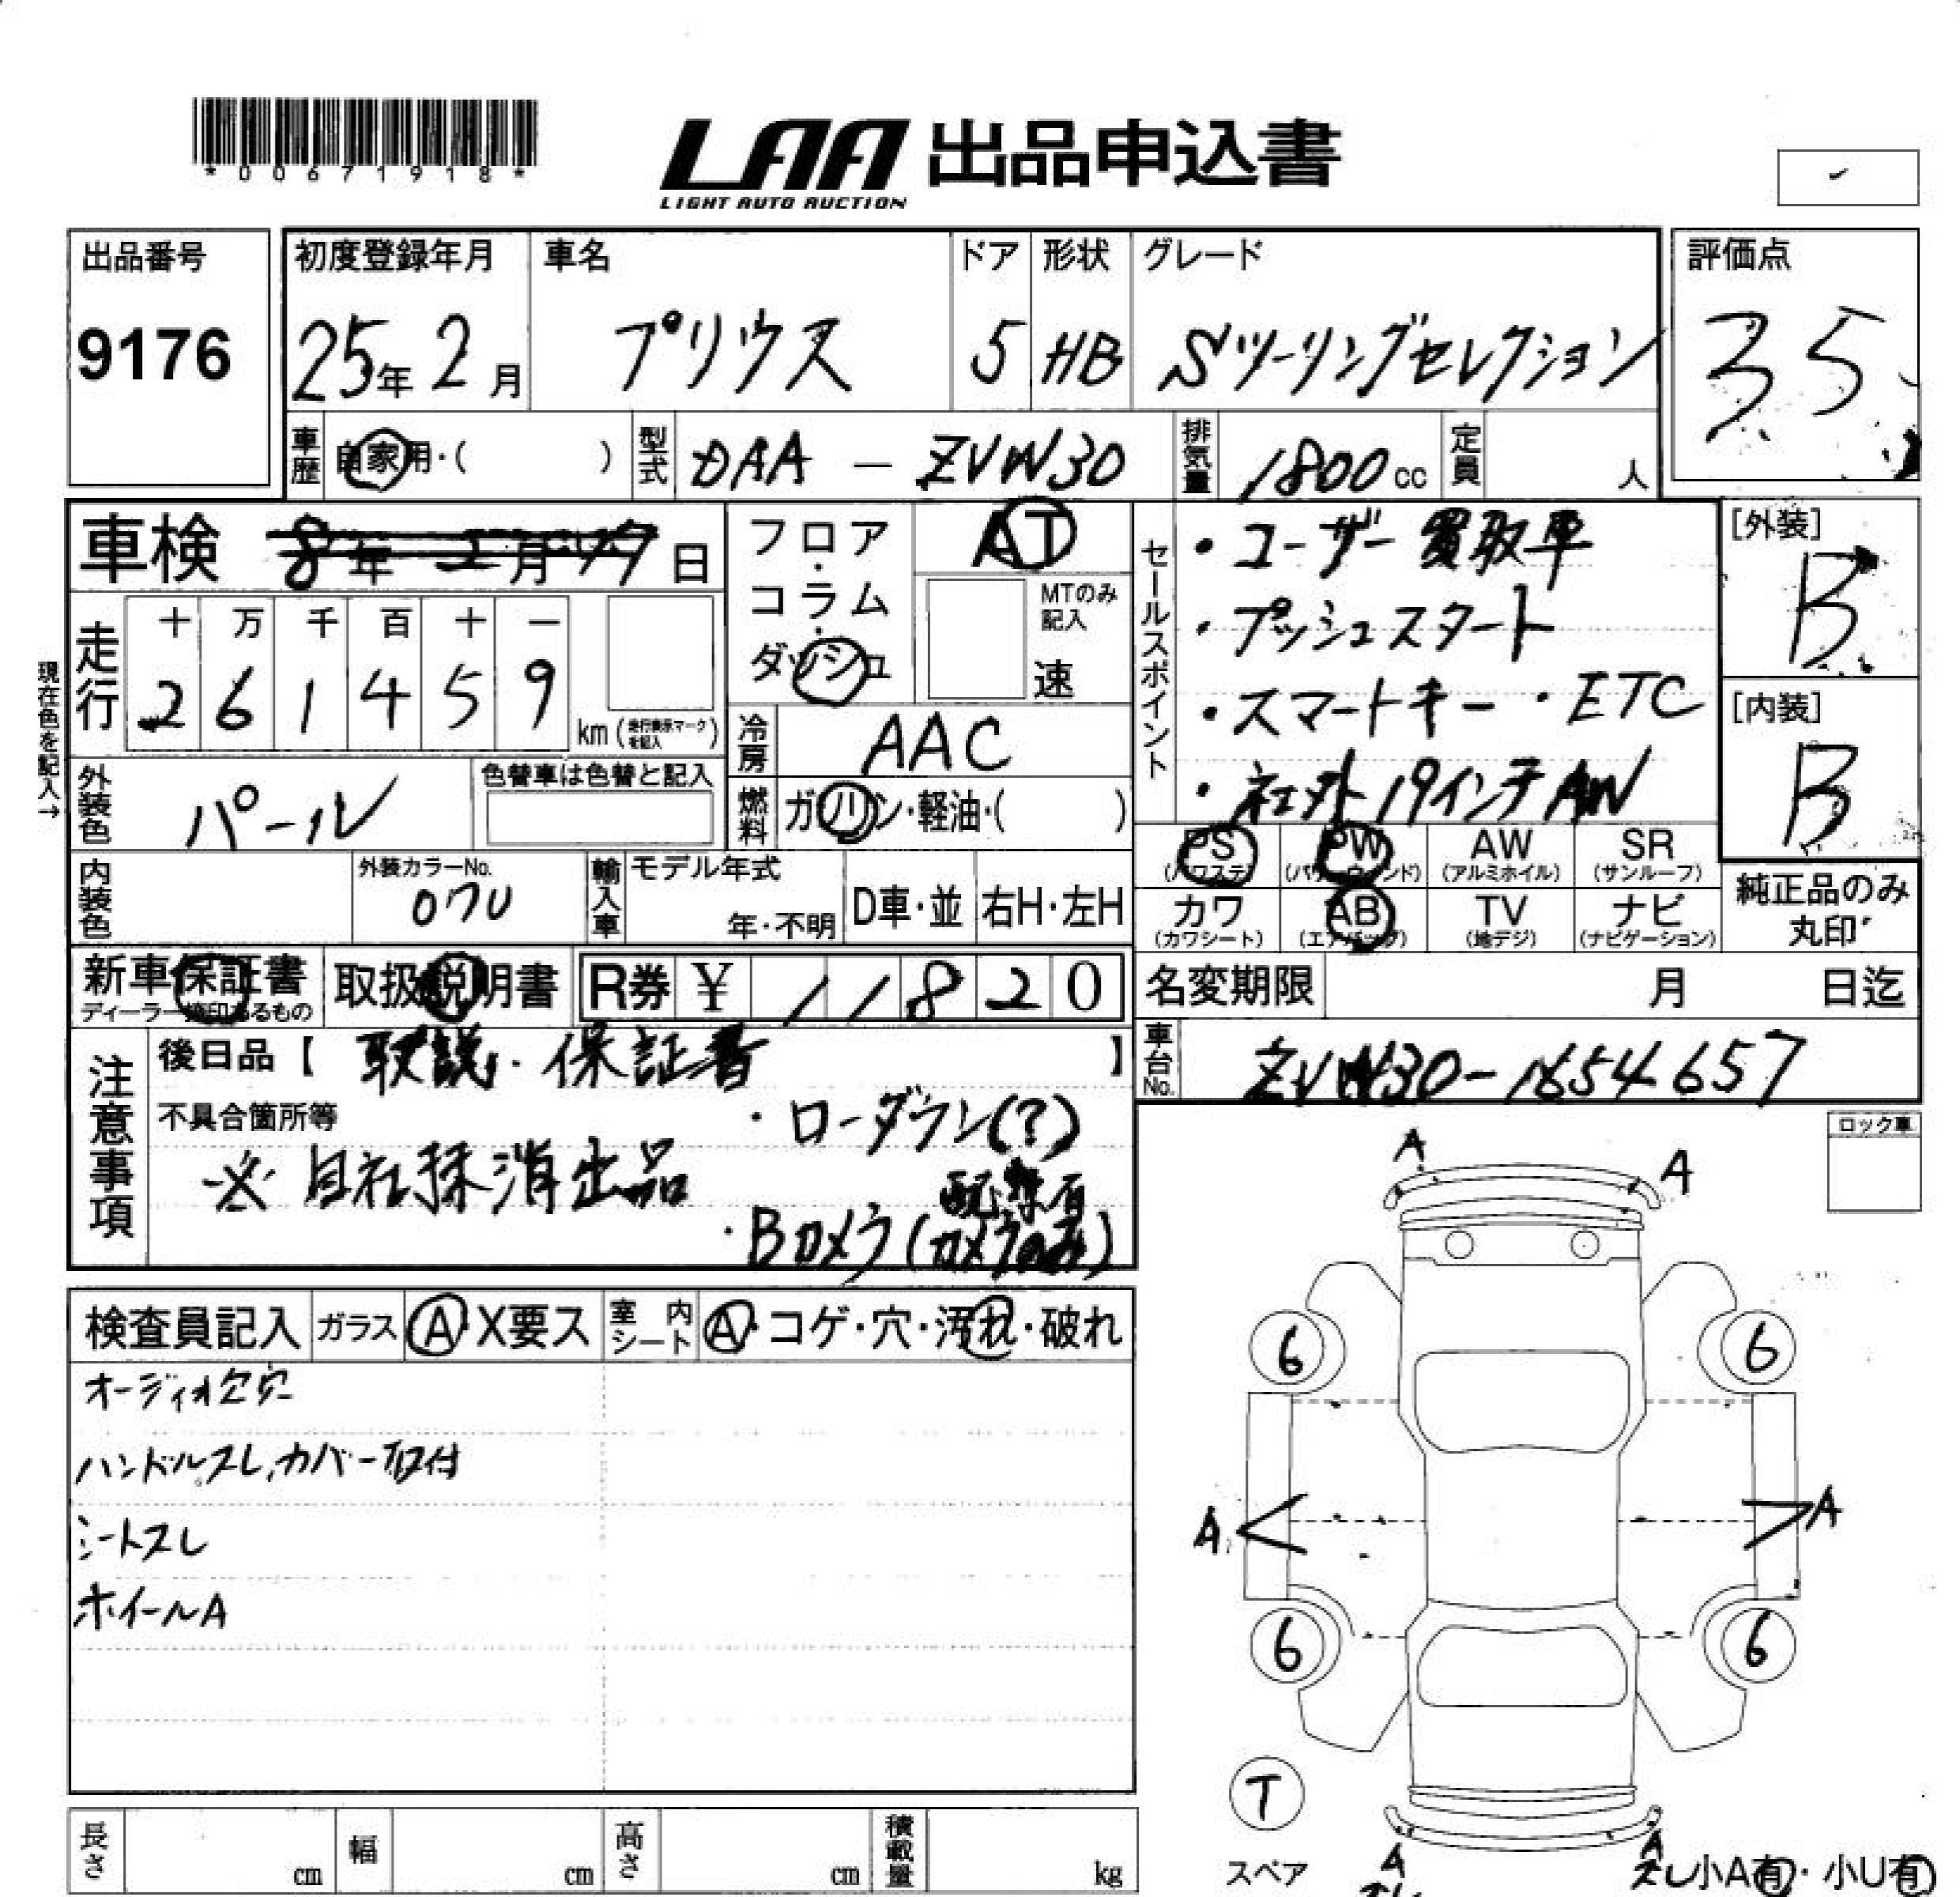 *00671918*
LAA 出品申込書
LIGHT AUTO AUCTION
出品番号
9176
初度登録年月
25年 2月
車名
プリウス
ドア
5
形状
HB
グレード
Sツーリングセレクション
評価点
3 5
車歴 自家用・( )
型式 DAA - ZVW30
排気量 1800cc
定員 人
車検 8年 月 日
フロア・コラム・ダッシュ
AT
MTのみ記入
速
セールスポイント
・ユーザー買取車
・プッシュスタート
・スマートキー ・ETC
・社外19インチAW
[外装]
B
[内装]
B
現在色を記入→
走行
十 万 千 百 十 一
2 6 1 4 5 9
km (走行表示マークを記入)
冷房 AAC
燃料 ガソリン・軽油・( )
外装色 パール
色替車は色替と記入
PS (パワステ)
PW (パワーウィンド)
AW (アルミホイル)
SR (サンルーフ)
カワ (カワシート)
AB (エアバッグ)
TV (地デジ)
ナビ (ナビゲーション)
純正品のみ丸印
内装色
外装カラーNo.
070
輸入車
モデル年式
年・不明
D車・並
右H・左H
新車保証書
ディーラー捺印あるもの
取扱説明書
R券 ¥ 11820
名変期限 月 日迄
車台No. ZVW30-1654657
注意事項
後日品【 取説・保証書 】
不具合箇所等
・ローダウン(?)
※自社抹消出品
配線有
・Bカメラ(カメラのみ)
ロック車
検査員記入
ガラス A・X要ス
室内シート A・コゲ・穴・汚れ・破れ
オーディオ欠穴
ハンドルスレ,カバー取付
シートスレ
ホイールA
A A
6 6
A A
6 6
T
スペア
A A
スレ 小A有・小U有
長さ cm
幅 cm
高さ cm
積載量 kg